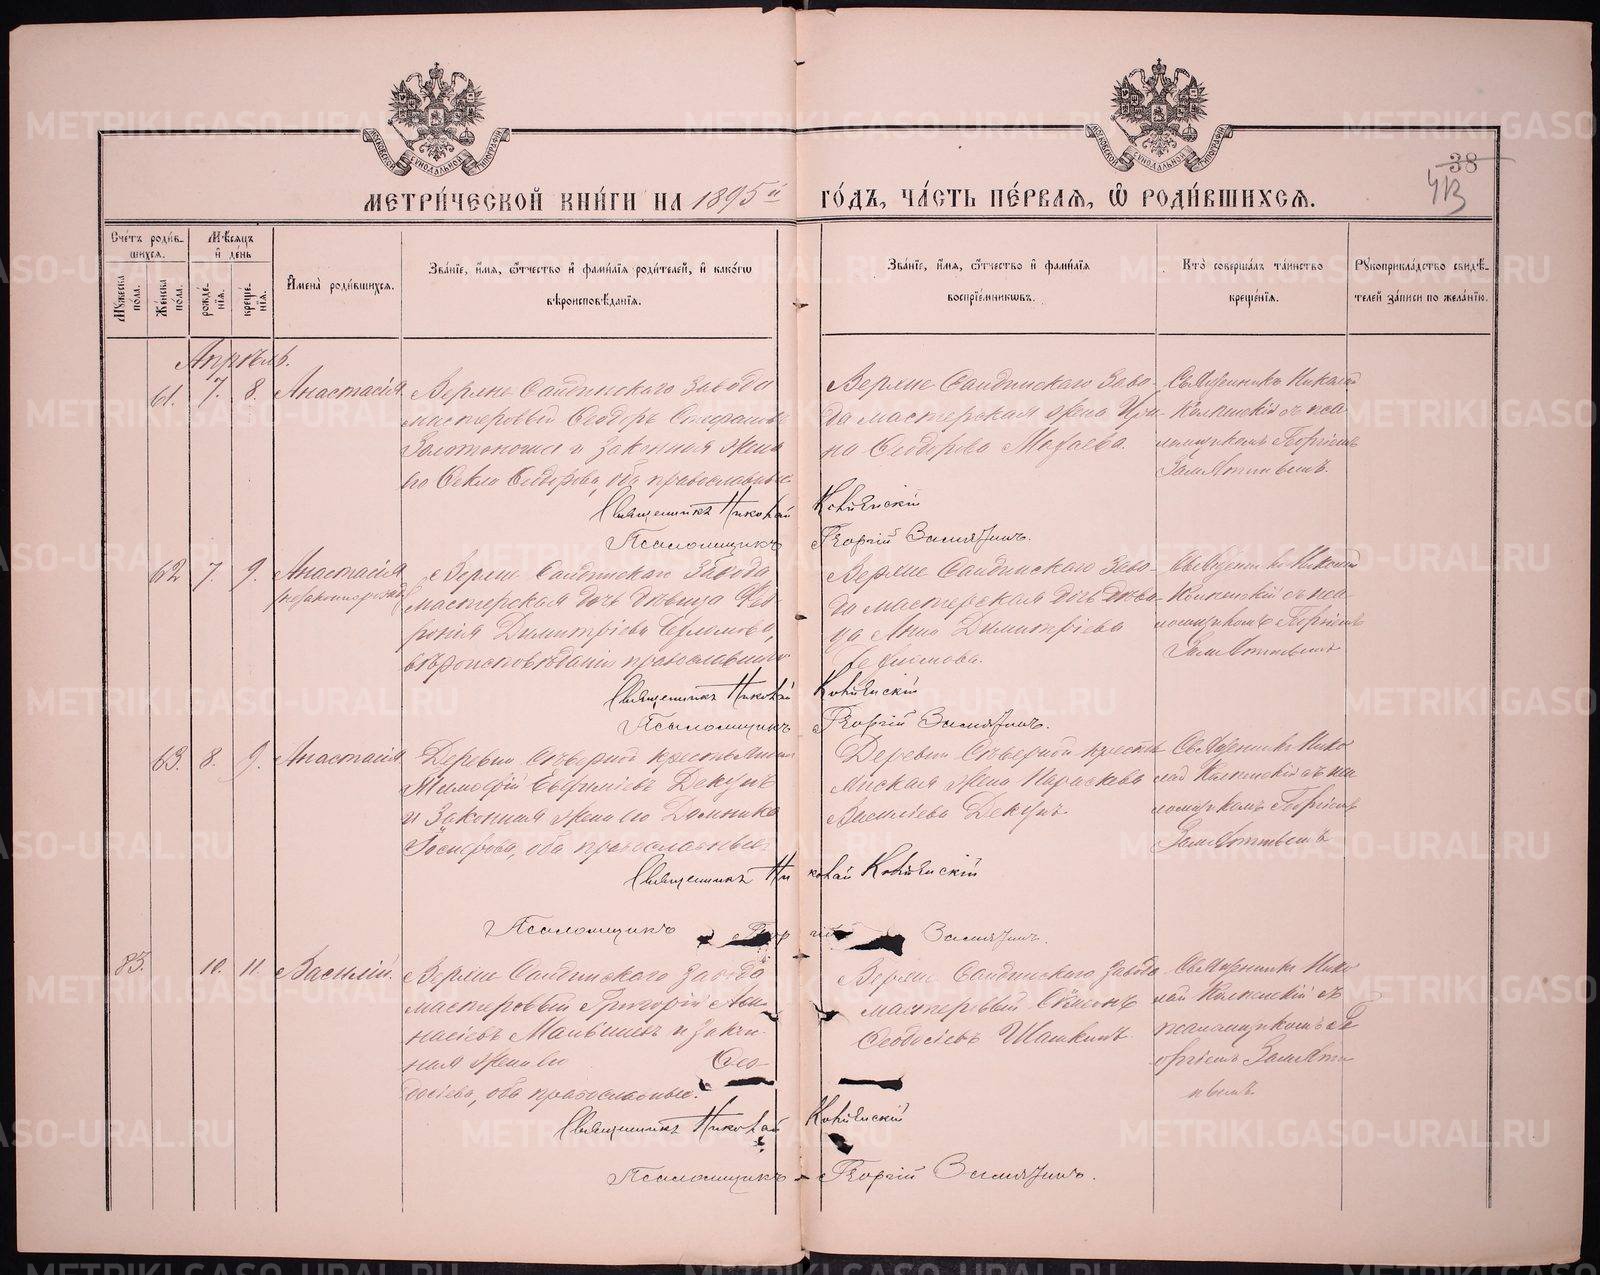 МОСКОВСКОЙ СѴНОДАЛЬНОЙ ТИПОГРАФІИ
МОСКОВСКОЙ СѴНОДАЛЬНОЙ ТИПОГРАФІИ
38
413
МЕТРИ́ЧЕСКОЙ КНИ́ГИ НА 1895й ГО́ДЪ, ЧА́СТЬ ПЕ́РВАЯ, Ѿ РОДИ́ВШИХСЯ.
Сче́тъ роди́в-
шихся.
Мѣ́сяцъ
и҆ де́нь
Мꙋ́жеска пола.
Же́нска пола.
рожде́-
нїѧ.
креще́-
нїѧ.
И҆мена̀ роди́вшихся.
Зва́нїе, и҆́мѧ, ѻ҆́тчество и҆ фамѵ́лїѧ роди́телей, и҆ како́гѡ
вѣроисповѣ́данїѧ.
Зва́нїе, и҆́мѧ, ѻ҆́тчество и҆ фамѵ́лїѧ
воспрїе́мникѡвъ.
Кто̀ соверша́лъ та́инство
креще́нїѧ.
Рꙋкоприкла́дство свидѣ́-
телей за́писи по жела́нїю.
Апрѣль.
61. 7. 8. Анастасія
Верхне Салдинскаго завода
мастеровый Ѳеодоръ Стефановъ
и законная жена
его Ѳекла Ѳеодорова, оба православные
Верхне Салдинскаго заво-
да мастерская жена Ири-
на Ѳеодорова
Священникъ Николай
Колпинскій съ пса-
ломщикомъ Георгіемъ
Замятинымъ.
Священникъ Николай Колпинскій
Псаломщикъ Георгій Замятинъ.
62 7. 9. Анастасія
(незаконнорожд)
Верхне Салдинскаго завода
мастерская дочь дѣвица Фев-
ронія Димитріева
вѣроисповѣданія православнаго
Верхне Салдинскаго заво-
да мастерская дочь дѣви-
ца Анна Димитріева
Священникъ Николай
Колпинскій съ пса-
ломщикомъ Георгіемъ
Замятинымъ
Священникъ Николай Колпинскій
Псаломщикъ Георгій Замятинъ.
63. 8. 9. Анастасія
Деревни Сѣверной крестьянинъ
Тимоѳей Евфиміевъ Декунъ
и законная жена его Домника
Іосифова, оба православные
Деревни Сѣверной кресть-
янская жена Параскева
Василіева Декунъ
Священникъ Нико
лай Колпинскій съ пса
ломщикомъ Георгіемъ
Замятинымъ
Священникъ Николай Колпинскій
Псаломщикъ Георгій Замятинъ.
83. 10. 11. Василій.
Верхне Салдинскаго завода
мастеровый Григорій
и закон-
ная жена его Ѳео-
досіева, оба православные.
Верхне Салдинскаго завода
мастеровый Сѵмеонъ
Ѳеодосіевъ
Священникъ Нико
лай Колпинскій съ
псаломщикомъ Ге
оргіемъ Замяти
нымъ
Священникъ Николай Колпинскій
Псаломщикъ Георгій Замятинъ.
METRIKI.GASO-URAL.RU